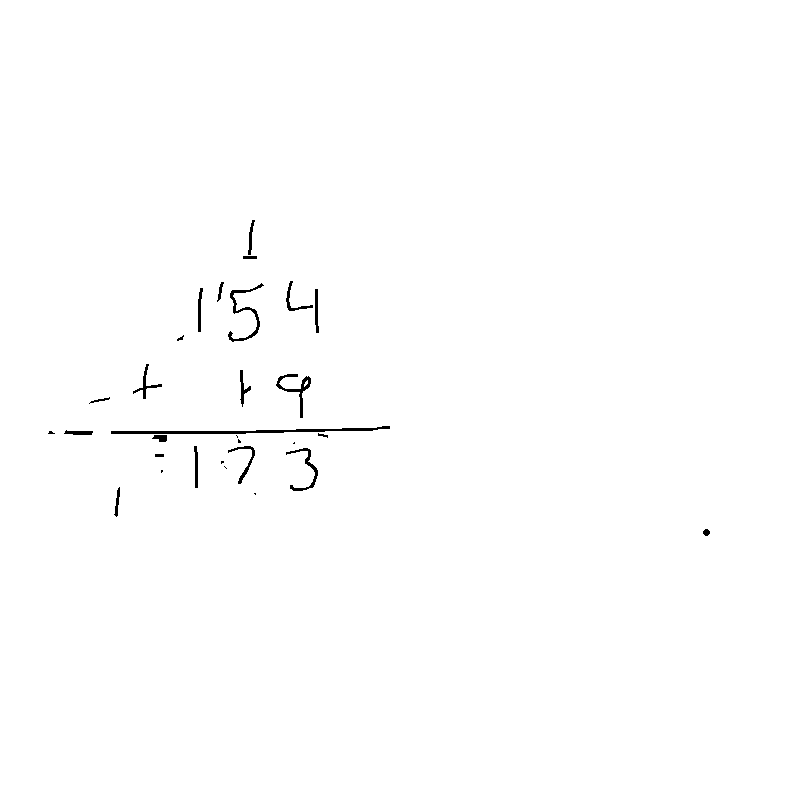 1
154
+ 19
173